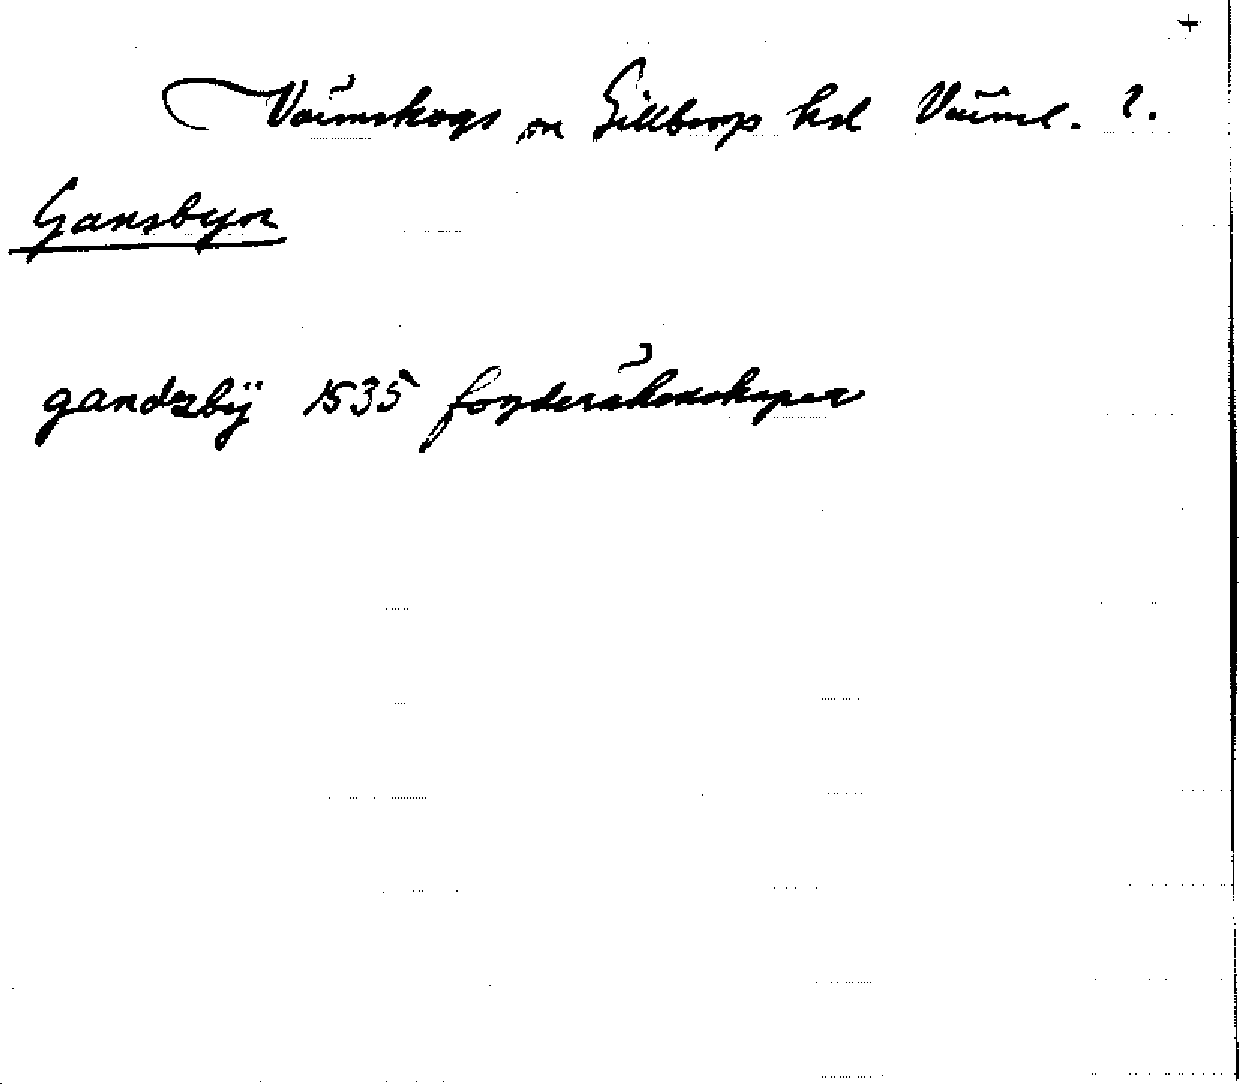 Värmskogs sn Gillbergs hd Värml. 2.
Gansbyn
gandzbÿ 1535 fogderäkenskaper